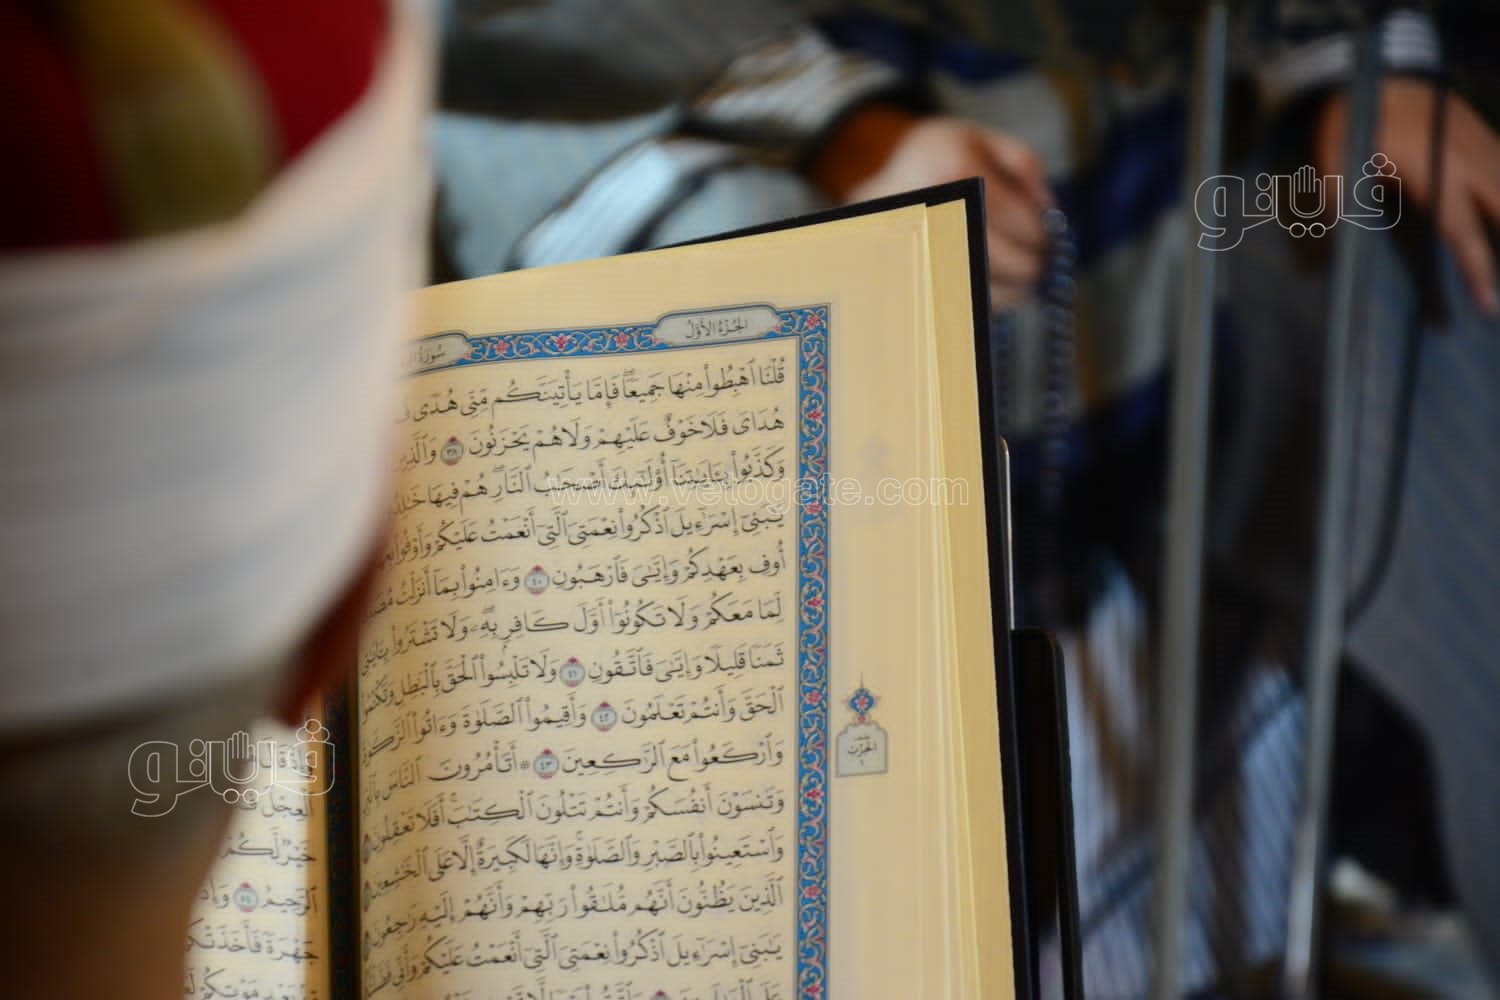 الجُزْءُ الأَوَّلُ
سُورَةُ
قُلْنَا ٱهْبِطُوا۟ مِنْهَا جَمِيعًۭا ۖ فَإِمَّا يَأْتِيَنَّكُم مِّنِّى هُدًۭى
هُدَاىَ فَلَا خَوْفٌ عَلَيْهِمْ وَلَا هُمْ يَحْزَنُونَ ٣٨ وَٱلَّذِينَ
وَكَذَّبُوا۟ بِـَٔايَـٰتِنَآ أُو۟لَـٰٓئِكَ أَصْحَـٰبُ ٱلنَّارِ ۖ هُمْ فِيهَا
يَـٰبَنِىٓ إِسْرَٰٓءِيلَ ٱذْكُرُوا۟ نِعْمَتِىَ ٱلَّتِىٓ أَنْعَمْتُ عَلَيْكُمْ وَأَوْفُوا۟
أُوفِ بِعَهْدِكُمْ وَإِيَّـٰىَ فَٱرْهَبُونِ ٤٠ وَءَامِنُوا۟ بِمَآ أَنزَلْتُ
لِّمَا مَعَكُمْ وَلَا تَكُونُوٓا۟ أَوَّلَ كَافِرٍۭ بِهِۦ ۖ وَلَا تَشْتَرُوا۟ بِـَٔايَـٰتِى
ثَمَنًۭا قَلِيلًۭا وَإِيَّـٰىَ فَٱتَّقُونِ ٤١ وَلَا تَلْبِسُوا۟ ٱلْحَقَّ بِٱلْبَـٰطِلِ وَتَكْتُمُوا۟
ٱلْحَقَّ وَأَنتُمْ تَعْلَمُونَ ٤٢ وَأَقِيمُوا۟ ٱلصَّلَوٰةَ وَءَاتُوا۟ ٱلزَّكَوٰةَ
وَٱرْكَعُوا۟ مَعَ ٱلرَّٰكِعِينَ ٤٣ ۞ أَتَأْمُرُونَ ٱلنَّاسَ بِٱلْبِرِّ
وَتَنسَوْنَ أَنفُسَكُمْ وَأَنتُمْ تَتْلُونَ ٱلْكِتَـٰبَ ۚ أَفَلَا تَعْقِلُونَ
وَٱسْتَعِينُوا۟ بِٱلصَّبْرِ وَٱلصَّلَوٰةِ ۚ وَإِنَّهَا لَكَبِيرَةٌ إِلَّا عَلَى ٱلْخَـٰشِعِينَ
ٱلَّذِينَ يَظُنُّونَ أَنَّهُم مُّلَـٰقُوا۟ رَبِّهِمْ وَأَنَّهُمْ إِلَيْهِ رَٰجِعُونَ
يَـٰبَنِىٓ إِسْرَٰٓءِيلَ ٱذْكُرُوا۟ نِعْمَتِىَ ٱلَّتِىٓ أَنْعَمْتُ عَلَيْكُمْ وَأَنِّى
الحِزْب
وَإِذْ قَالَ
ٱلْعِجْلَ
خَيْرٌۭ لَّكُمْ
ٱلرَّحِيمُ ٥٤ وَإِذْ
جَهْرَةًۭ فَأَخَذَتْكُمُ
مَوْتِكُمْ
فيتو
فيتو
www.vetogate.com